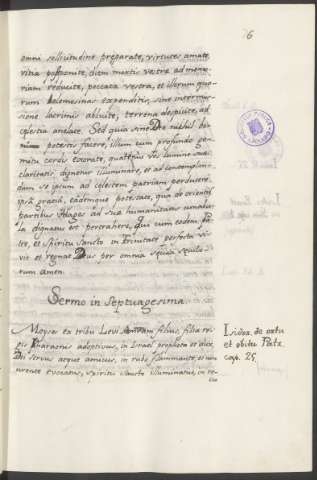 6
omni sollicitudine preparate, virtutes amate
vitia postponite, diem mortis vestre ad memo-
riam reducite, peccata vestra, et illorum quo-
rum helemosinas expenditis, sine intermis-
sione lacrimis abluite, terrena despicite, ad
celestia anelate. Sed quia sine Deo nichil bo-
potestis facere, illum cum profundo ge-
mitu cordis exorate, quatenus vos lumine sue
claritatis dignetur illuminare, et ad contemplan-
dum se ipsum ad celestem patriam perducere
ipsa gracia, eademque potestate, qua de orientis
partibus Magos ad sua humanitatis
la dignatus est pertrahere, qui cum eodem Pa-
tre, et Spiritu Sancto in trinitate perfecta vi-
vit et regnat Deus per omnia secula seculo-
rum amen.
Sermo in Septuagesima
Moyses ex tribu Levi Amram filius, filia re-
gis Pharaonis adoptivus, in Israel propheta et dux,
Dei servus atque amicus, in rubo flammante, et non
urente vocatus, spiritu sancto illuminatus, in re-
Isidor. de ortu
et obitu Patr.
cap. 25.